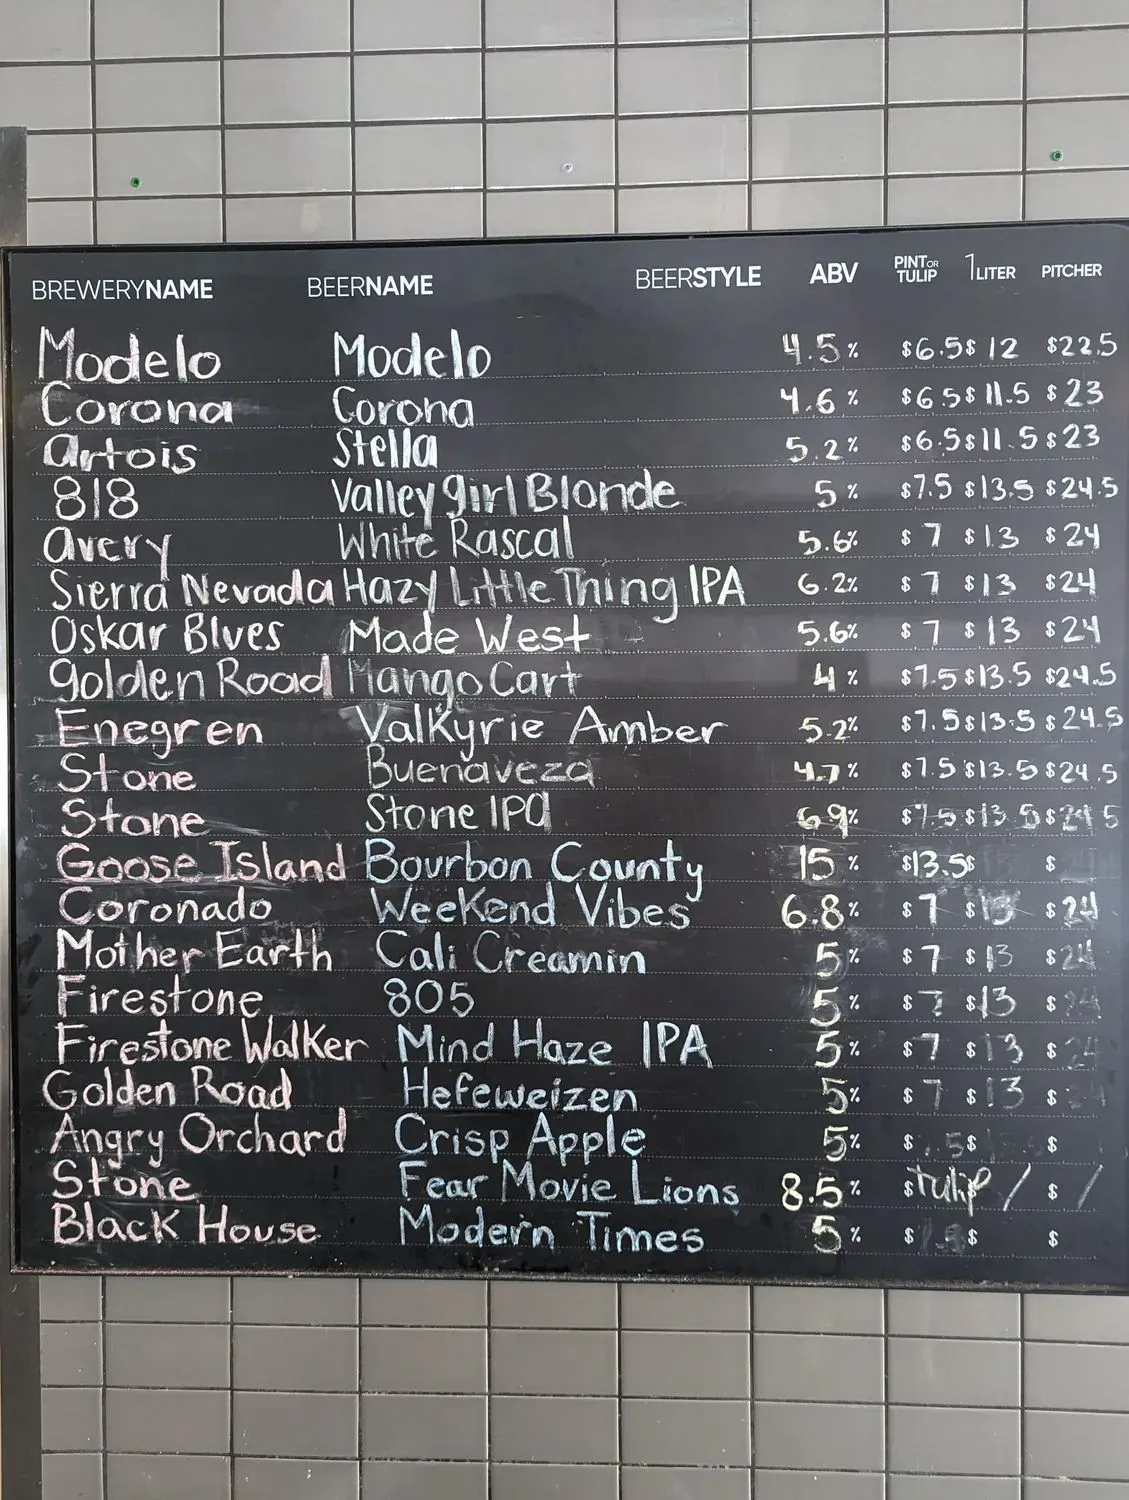 BREWERYNAME BEERNAME BEERSTYLE ABV PINT OR TULIP 1 LITER PITCHER
Modelo Modelo 4.5% $6.5 $12 $22.5
Corona Corona 4.6% $6.5 $11.5 $23
Artois Stella 5.2% $6.5 $11.5 $23
818 Valley girl Blonde 5% $7.5 $13.5 $24.5
Avery White Rascal 5.6% $7 $13 $24
Sierra Nevada Hazy Little Thing IPA 6.2% $7 $13 $24
Oskar Blues Made West 5.6% $7 $13 $24
golden Road Mango Cart 4% $7.5 $13.5 $24.5
Enegren Valkyrie Amber 5.2% $7.5 $13.5 $24.5
Stone Buenaveza 4.7% $7.5 $13.5 $24.5
Stone Stone IPA 6.9% $7.5 $13.5 $24.5
Goose Island Bourbon County 15% $13.5 $ $
Coronado Weekend Vibes 6.8% $7 $13 $24
Mother Earth Cali Creamin 5% $7 $13 $24
Firestone 805 5% $7 $13 $
Firestone Walker Mind Haze IPA 5% $7 $13 $
Golden Road Hefeweizen 5% $7 $13 $
Angry Orchard Crisp Apple 5% $ $ $
Stone Fear Movie Lions 8.5% $tulip / $ /
Black House Modern Times 5% $ $ $